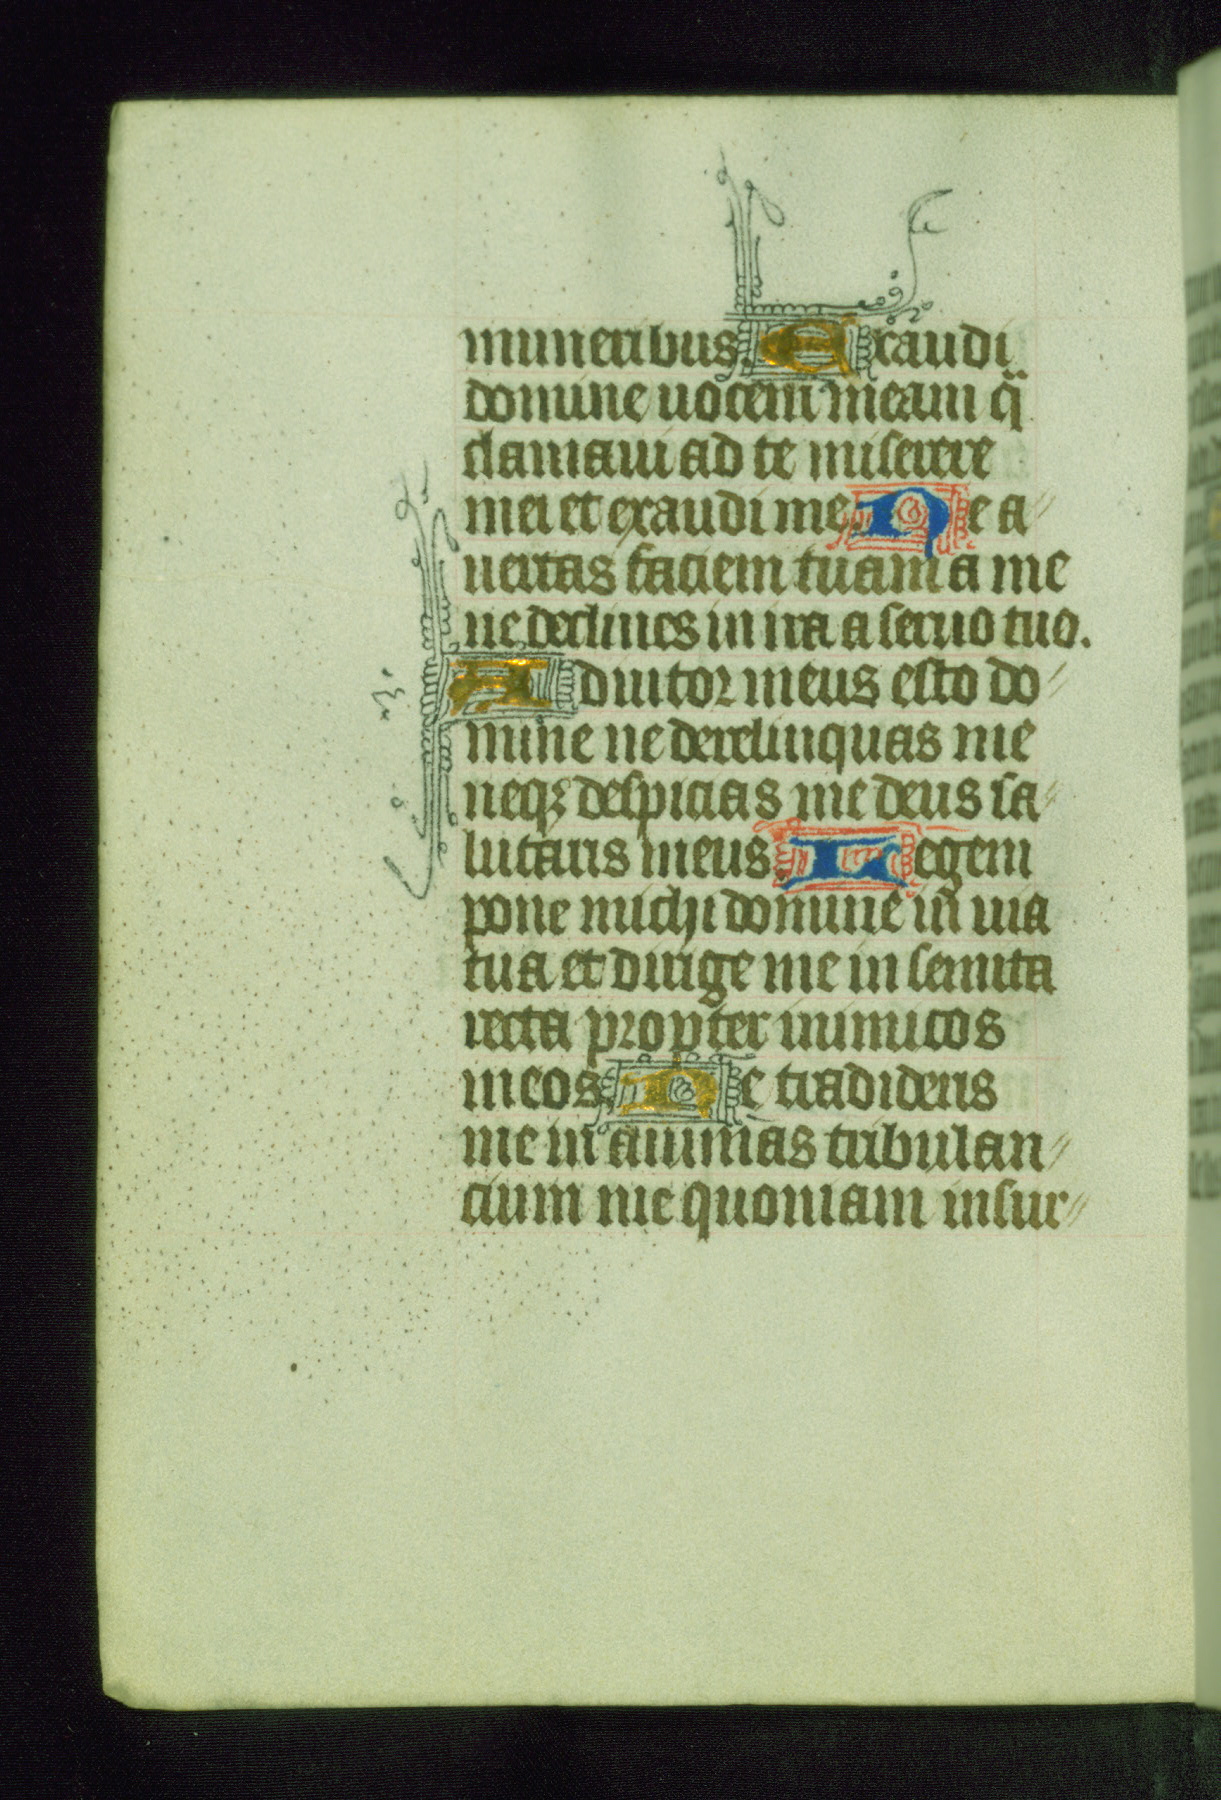 muneribus. Exaudi
domine uocem meam q̈
clamaui ad te miserere
mei et exaudi me. Ne a
uertas faciem tuam a me
ne declines in ira a seruo tuo.
Adiutor meus esto do
mine ne derelinquas me
neqꝫ despicias me deus sa
lutaris meus. Legem
pone michi domine in uia
tua et dirige me in semita
recta propter inimicos
meos. Ne tradideris
me in animas tribulan
cium me quoniam insur